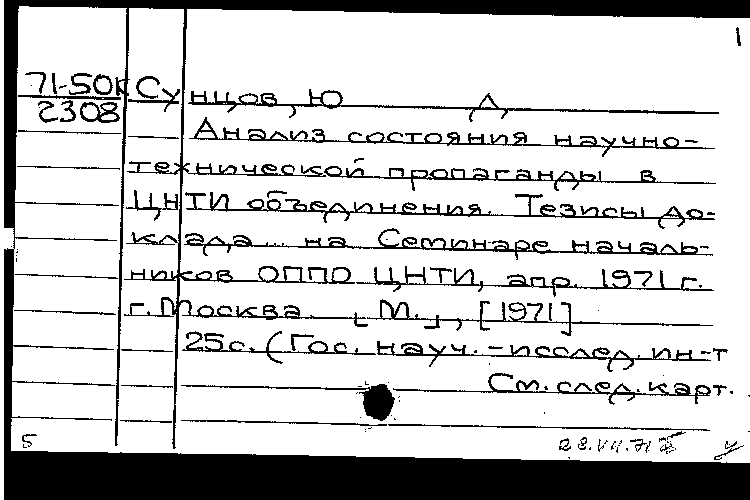 1
71-50к Сунцов, Ю Д
2308
Анализ состояния научно-
технической пропаганды в
ЦНТИ объединения. Тезисы до-
клада... на Семинаре началь-
ников ОППО ЦНТИ, апр. 1971 г.
г. Москва. [М.], [1971]
25с. (Гос. науч.-исслед. ин-т
См. след. карт.
5 28.VII.71